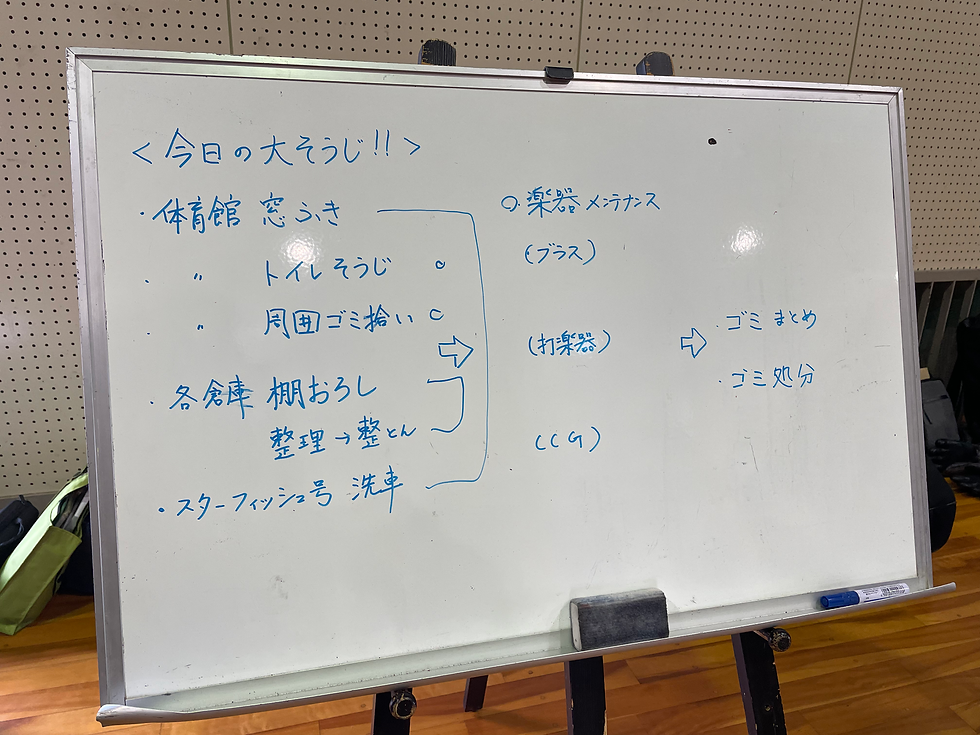 <今日の大そうじ!!>
・体育館 窓ふき
・ 〃 トイレそうじ ○
・ 〃 周囲ゴミ拾い ○
⇨
・各倉庫 棚おろし
整理→整とん
・スターフィッシュ号 洗車
○楽器メンテナンス
(ブラス)
(打楽器)
(CG)
⇨
・ゴミまとめ
・ゴミ処分